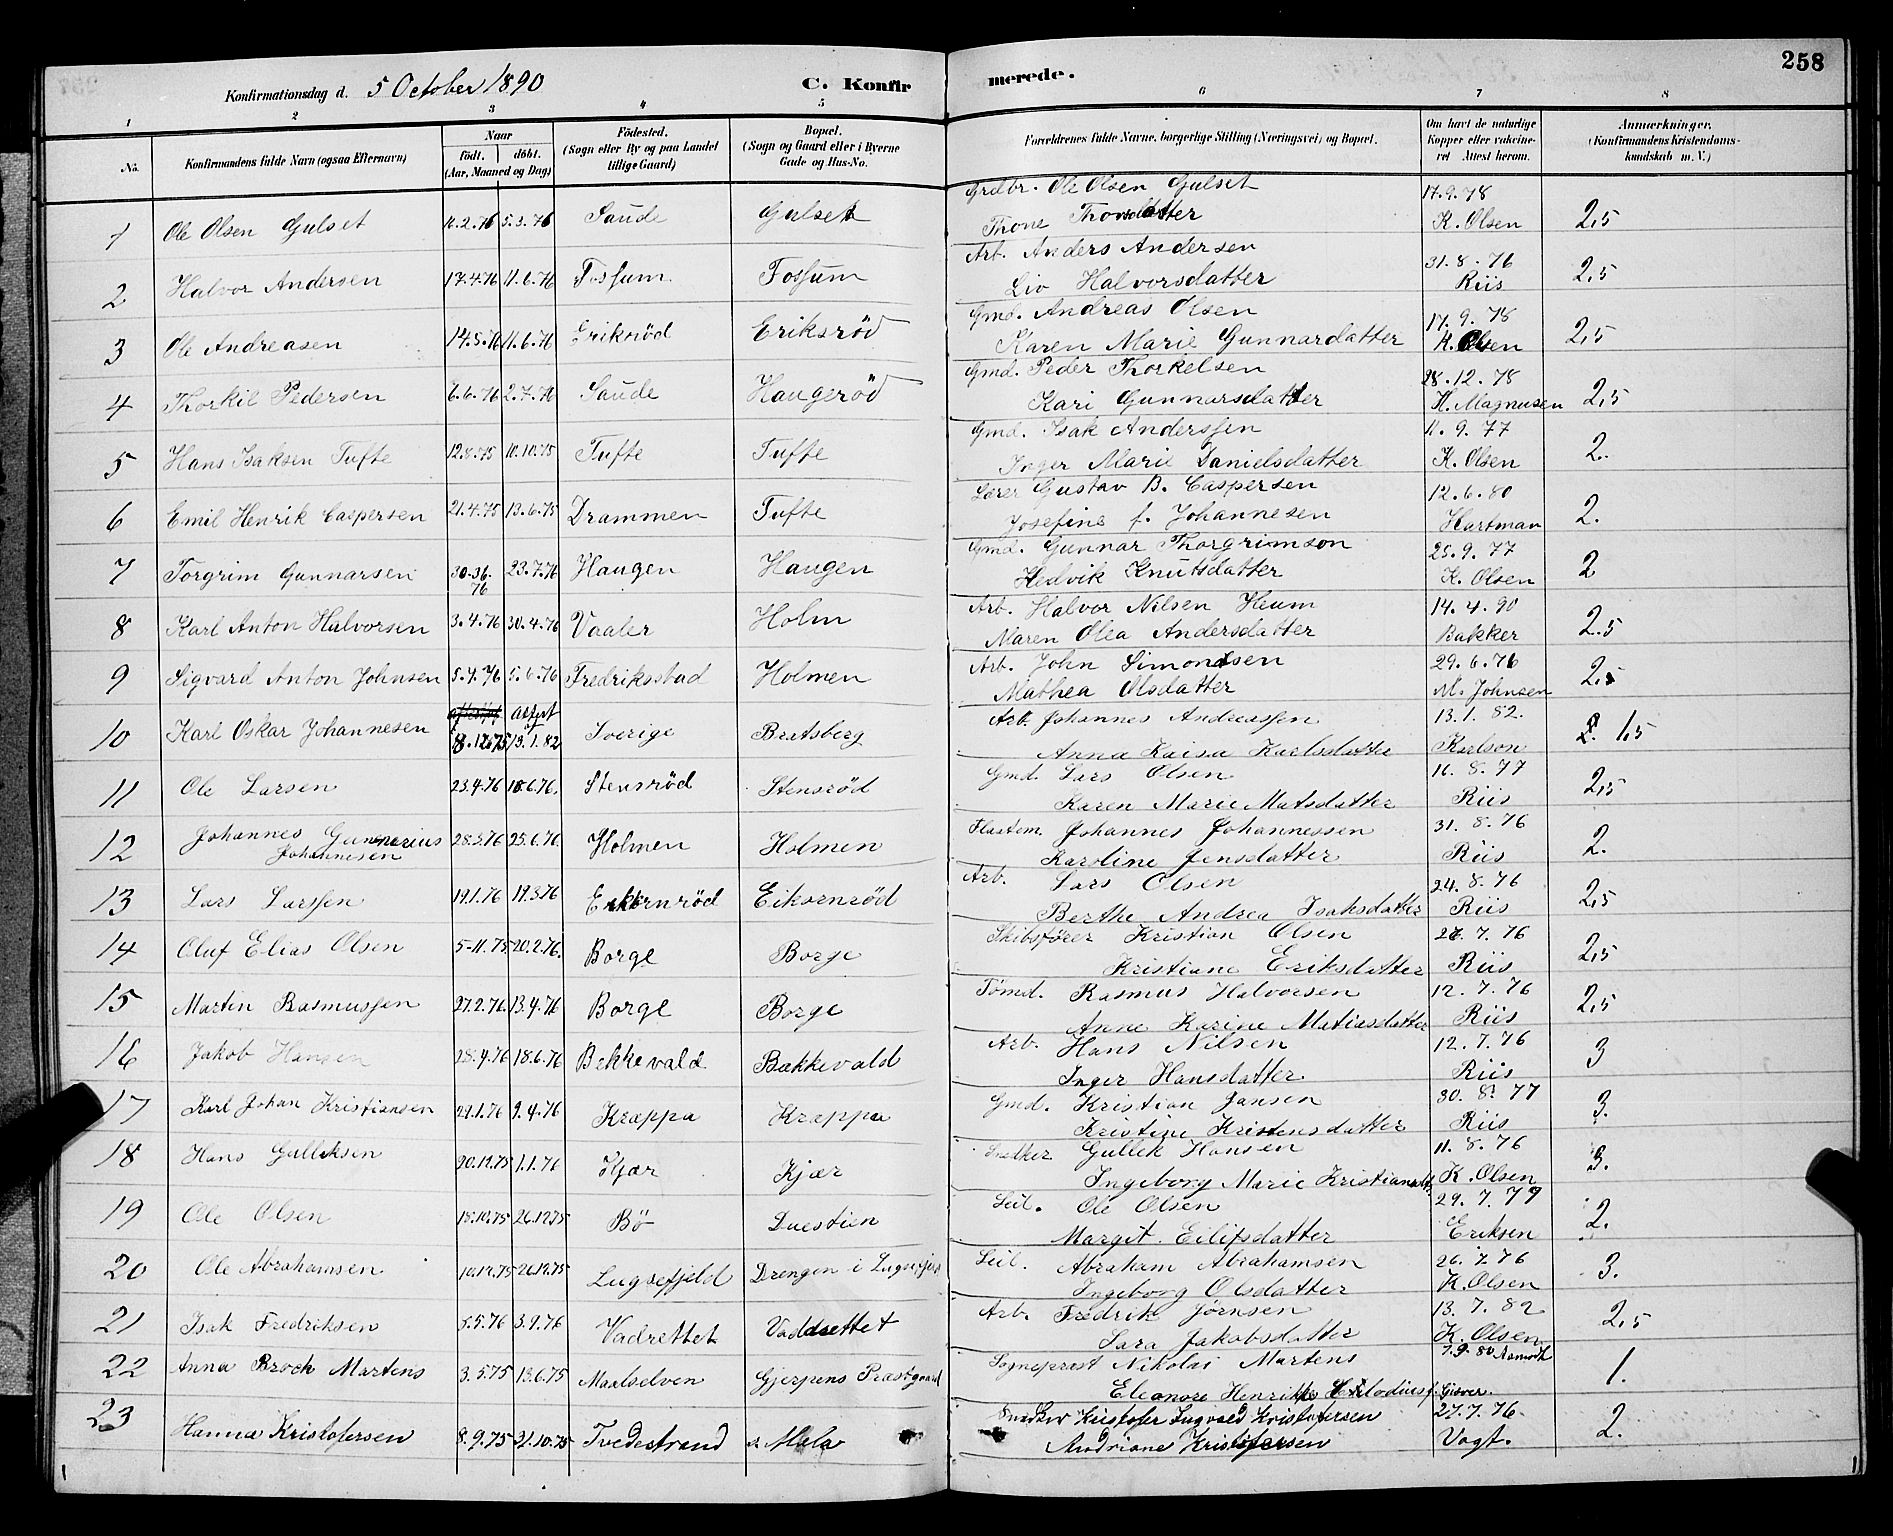 258
Konfirmationsdag d. 5 October 1890 C. Konfirmerede.
1 2 3 4 5 6 7 8
No. Konfirmandens fulde Navn (ogsaa Efternavn) Naar født. døbt. (Aar, Maaned og Dag) Fødested. (Sogn eller By og paa Landet tillige Gaard) Bopæl. (Sogn og Gaard eller i Byerne Gade og Hus-No. Forældrenes fulde Navne, borgerlige Stilling (Næringsvei) og Bopæl. Om havt de naturlige Kopper eller vakcineret Attest herom. Anmærkninger. (Konfirmandens Kristendomskundskab m. V.)
1 Ole Olsen Gulset 16.2.76 5.3.76 Saude Gulset Grdbr. Ole Olsen Gulset 17.9.78
Trone K. Olsen 2,5
2 Halvor Andersen 17.4.76 11.6.76 Fossum Fossum Arb. Anders Andersen 31.8.76
Liv Halvorsdatter Riis 2,5
3 Ole Andreasen 14.5.76 11.6.76 Eriksrød Eriksrød Gmd. Andreas Olsen 17.9.78
Karen Marie Gunnardatter K. Olsen 2,5
4 Thorkil Pedersen 6.6.76 2.7.76 Saude Haugerød Gmd. Peder Thorkelsen 28.12.78
Kari Gunnarsdatter H. Magnusen 2,5
5 Hans Isaksen Tufte 12.8.75 10.10.75 Tufte Tufte Gmd. Isak Anderssen 11.9.77
Inger Marie Danielsdatter K. Olsen 2.
6 Emil Henrik Caspersen 21.4.75 13.6.75 Drammen Tufte Lærer Gustav B. Caspersen 12.6.80
Josefine f. Johannesen Hartman 2.
7 Torgrim Gunnarsen 76 23.7.76 Haugen Haugen Gmd. Gunnar Thorgrimson 25.9.77
Hedvik Knutsdatter K. Olsen 2
8 Karl Anton Halvorsen 3.4.76 30.4.76 Vaaler Holm Arb. Halvor Nilsen Heum 14.4.90
Maren Olea Andersdatter Bakker 2.5
9 Sigvard Anton Johnsen 5.4.76 5.6.76 Fredriksstad Holmen Arb. John Simondsen 29.6.76
Mathea Olsdatter M. Johnsen 2,5
10 Karl Oskar Johannesen 8.12.75 13.1.82 Sverige Bratsberg Arb. Johannes Andreassen 13.1.82.
Anna Kaisa Karlsdatter Karlson 1,5
11 Ole Larsen 23.4.76 18.6.76. Stensrød Stensrød Gmd. Lars Olsen 16.8.77
Karen Marie Matsdatter Riis 2,5
12 Johannes Gunnerius Johannesen 28.3.76 25.6.76 Holmen Holmen Johannes Johannessen 31.8.76
Karoline Jensdatter Riis 2.
13 Lars Larssen 19.1.76 19.3.76 Eikornrød Eikornrød Arb. Lars Olsen 24.8.76
Berthe Andrea Isaksdatter Riis 2,5
14 Oluf Elias Olsen 5-11.75 20.2.76. Borge Borge Skibsfører Kristian Olsen 26.7.76
Kristiane Eriksdatter Riis 2,5
15 Martin Rasmussen 27.2.76. 13.4.76 Borge Borge Tømd. Rasmus Halvorsen 12.7.76
Anne Karine Matiasdatter Riis 2,5
16 Jakob Hansen 28.4.76 18.6.76 Bekkevald Bakkevald Arb. Hans Nilsen 12.7.76
Inger Hansdatter. Riis 3
17 Karl Johan Kristiansen 29.1.76 9.4.76 Kræppa Kræppa Gmd. Kristian Jansen 30.8.77
Kristine Kristensdatter Riis 3.
18 Hans Gulleksen 20.12.75 1.1.76 Kjær Kjær Snedker Gullek Hansen 11.8.76
Ingeborg Marie K. Olsen 3.
19 Ole Olsen 18.10.75 26.12.75 Bø Duestien Leil. Ole Olsen 29.7.79
Margit Eilifsdatter Eriksen 2.
20 Ole Abrahamsen 10.12.75 26.12.75 Lugsefjeld Drengen i Leil. Abraham Abrahamsen 26.7.76
Ingeborg Olsdatter K. Olsen 3.
21 Isak Fredriksen 5.5.76 3.9.76 Vadrettet Vaddrettet Arb. Fredrik Jørnsen 13.7.82
Sara Jakobsdatter K. Olsen 2,5
22 Anna Brock Martens 3.5.75 13.6.75 Maalselven Gjerpens Præstgaard Sogneprest Nikolai Martens 7.9.80
Eleonore Henrikke Gisver. 1.
23 Hanna Kristofersen 8.9.75 31.10.75 Tvedestrand Mæla Snedker Kristofer Ingvald Kristofersen 27.7.76
Andriane Kristofersen Vogt. 2.